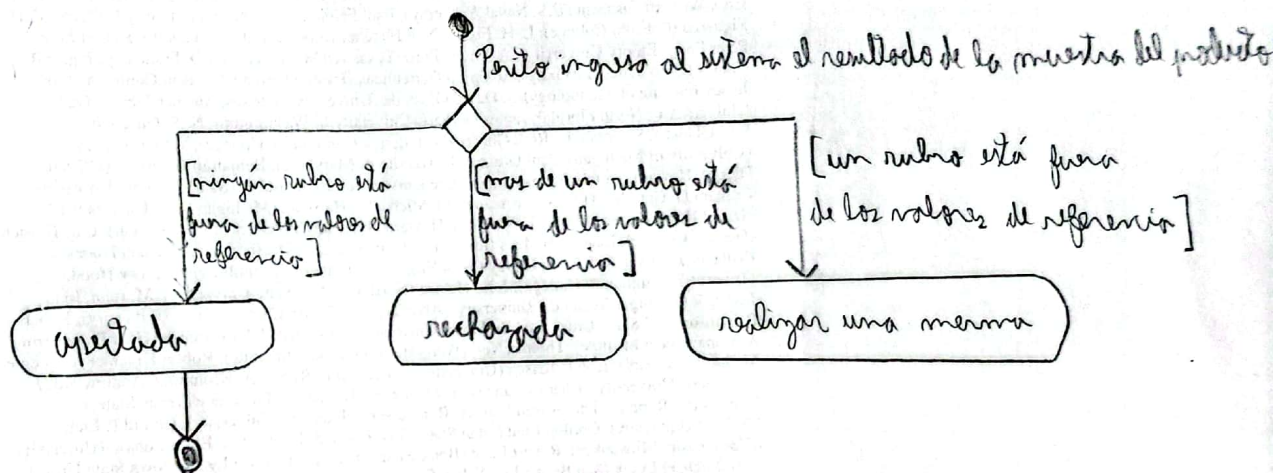 Perito ingresa al sistema el resultado de la muestra del producto
[ningún rubro está
fuera de los valores de
referencia]
[mas de un rubro está
fuera de los valores de
referencia]
[un rubro está fuera
de los valores de referencia]
apectada
rechazada
realizar una merma